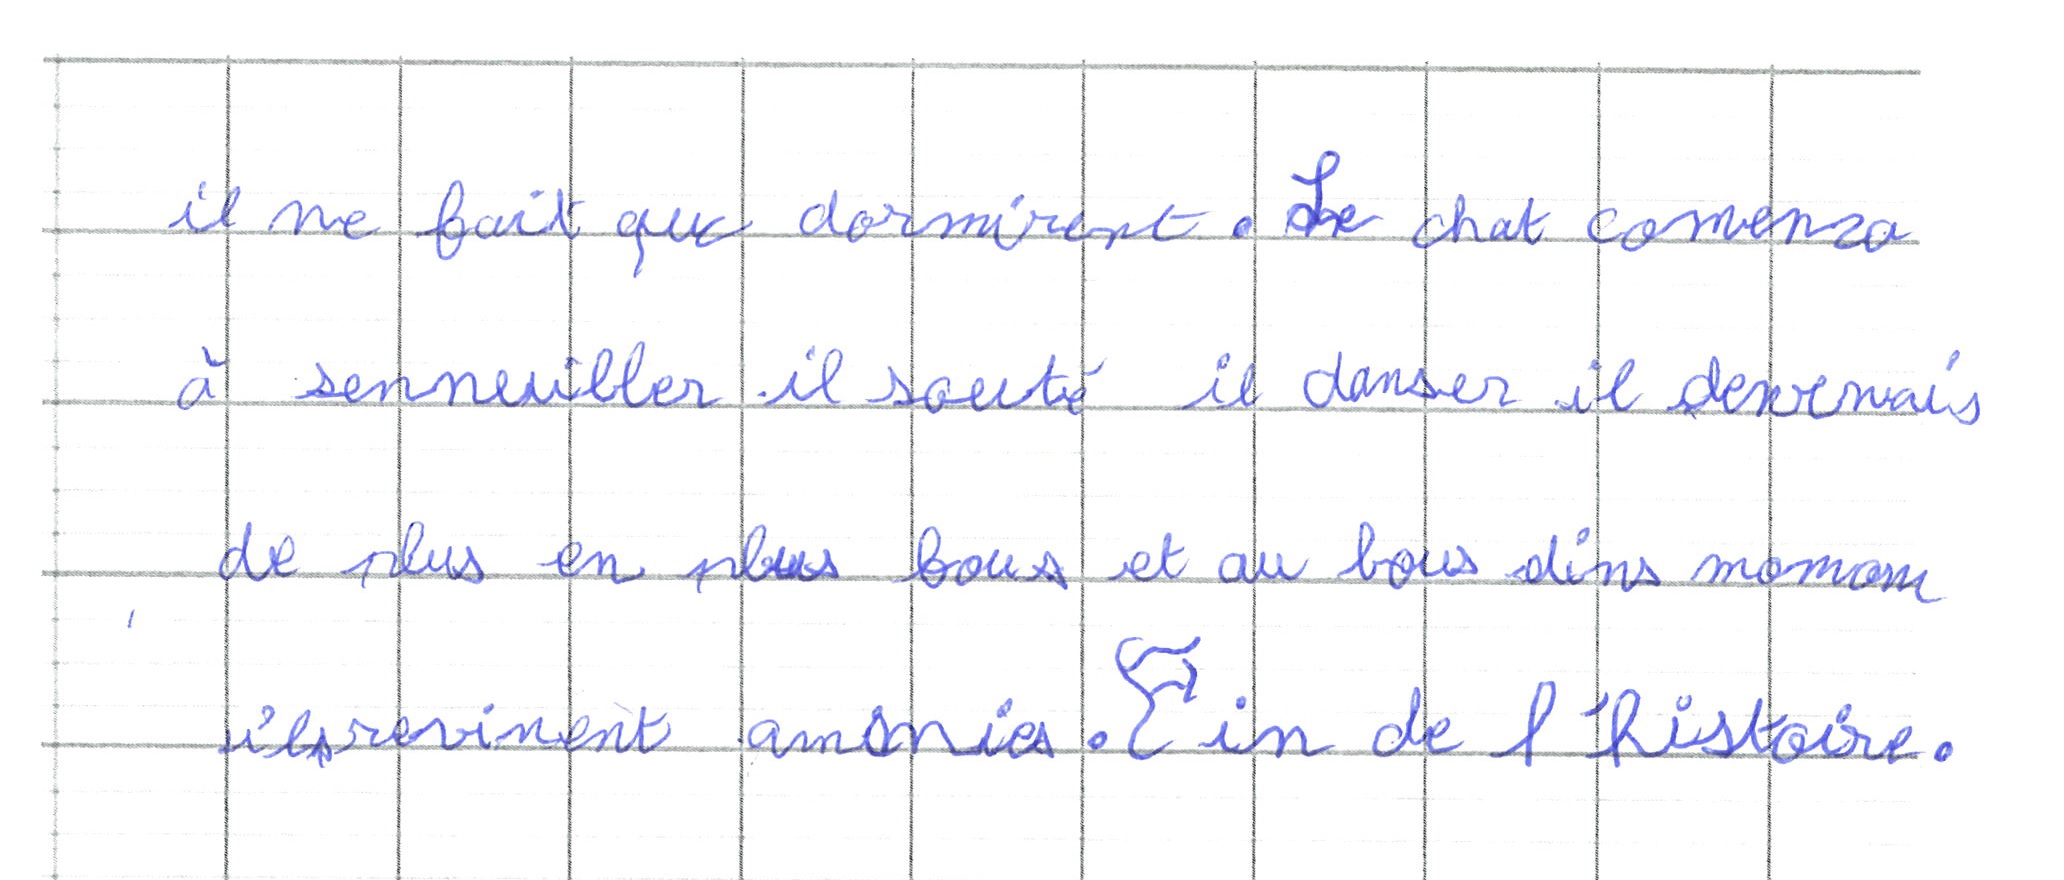 il ne fait que dormirent. Le chat comenza
à sennuiller il souté il danser il devenais
de plus en plus fous et au bous dins momom
ils revinent amonies. Fin de l'histoire.